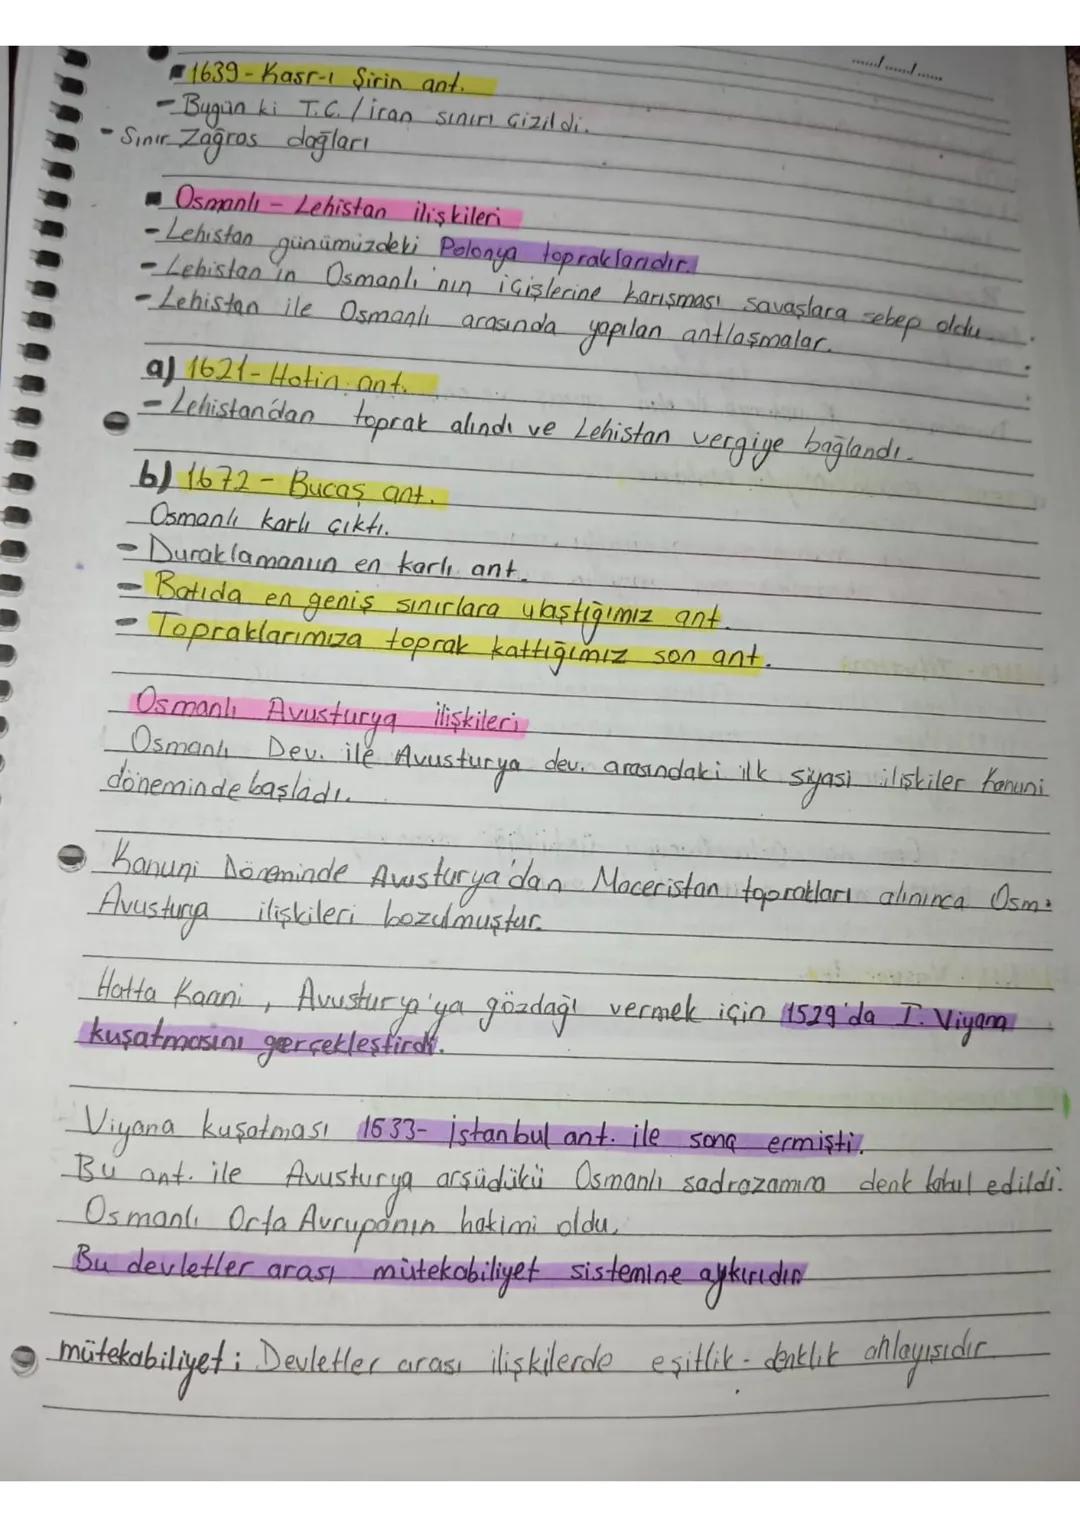 ....../....../......
1639 - Kasr-ı Şirin ant.
- Bugün ki T.C. / İran sınırı çizildi.
- Sınır Zağros dağları
Osmanlı - Lehistan ilişkileri
- Lehistan günümüzdeki Polonya topraklarıdır.
- Lehistan'ın Osmanlı'nın içişlerine karışması savaşlara sebep oldu.
- Lehistan ile Osmanlı arasında yapılan antlaşmalar.
a) 1621 - Hotin ant.
- Lehistan'dan toprak alındı ve Lehistan vergiye bağlandı.
b) 1672 - Bucaş ant.
Osmanlı karlı çıktı.
- Duraklamanın en karlı ant.
- Batıda en geniş sınırlara ulaştığımız ant.
- Topraklarımıza toprak kattığımız son ant.
Osmanlı Avusturya ilişkileri
Osmanlı Dev. ile Avusturya dev. arasındaki ilk siyasi ilişkiler Kanuni
döneminde başladı.
Kanuni Döneminde Avusturya'dan Maceristan toprakları alınınca Osm.
Avusturya ilişkileri bozulmuştur.
Hatta Kaani, Avusturya'ya gözdağı vermek için 1529'da I. Viyana
kuşatmasını gerçekleştirdi.
Viyana kuşatması 1533- İstanbul ant. ile sona ermişti.
Bu ant. ile Avusturya arşüdükü Osmanlı sadrazamına denk kabul edildi.
Osmanlı Orta Avrupanın hakimi oldu.
Bu devletler arası mütekabiliyet sistemine aykırıdır
mütekabiliyet: Devletler arası ilişkilerde eşitlik - denklik anlayışıdır